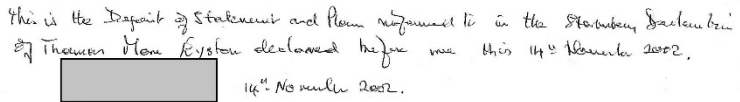 This is the Deposit of Statement and Plan referred to in the Statutory Declaration
of Thomas More Eyston declared before me this 14th November 2002.
14th November 2002.